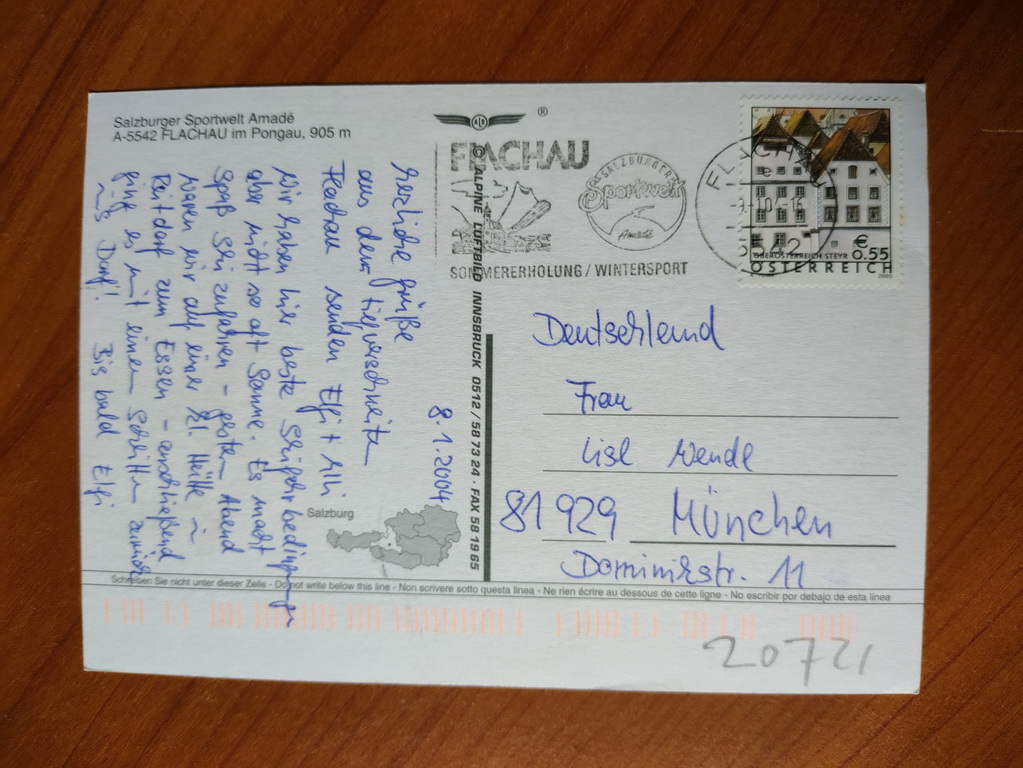 Salzburger Sportwelt Amadé
A-5542 FLACHAU im Pongau, 905 m
ALD
®
FLACHAU
SALZBURGER
Sportwelt
Amadé
SOMMERERHOLUNG / WINTERSPORT
FLACHAU
-9.-1.04-16
5542
€
0.55
OBERÖSTERREICH·STEYR
2003
ÖSTERREICH
© ALPINE LUFTBILD INNSBRUCK 0512 / 58 73 24 · FAX 58 19 65
8.1.2004
Herzliche Grüße
aus dem tiefverschneiten
Flachau senden Elfi +
Wir haben hier beste Skifahrbedingungen
aber nicht so oft Sonne. Es macht
Spaß Ski zufahren - gestern Abend
waren wir auf einer Hütte in
Reitdorf zum Essen - anschließend
ging es mit einem Schlitten zurück
ins Dorf! Bis bald Elfi
Deutschland
Frau
Lisl Wende
81929 München
Dominikstr. 11
Salzburg
Schreiben Sie nicht unter dieser Zeile - Do not write below this line - Non scrivere sotto questa linea - Ne rien écrire au dessous de cette ligne - No escribir por debajo de esta linea